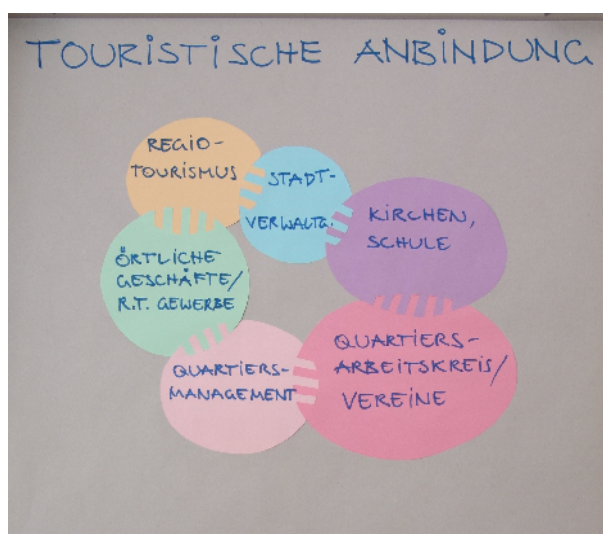 TOURISTISCHE ANBINDUNG
REGIO-
TOURISMUS
STADT-
VERWALTG.
KIRCHEN,
SCHULE
ÖRTLICHE
GESCHÄFTE/
R.T. GEWERBE
QUARTIERS-
MANAGEMENT
QUARTIERS-
ARBEITSKREIS/
VEREINE